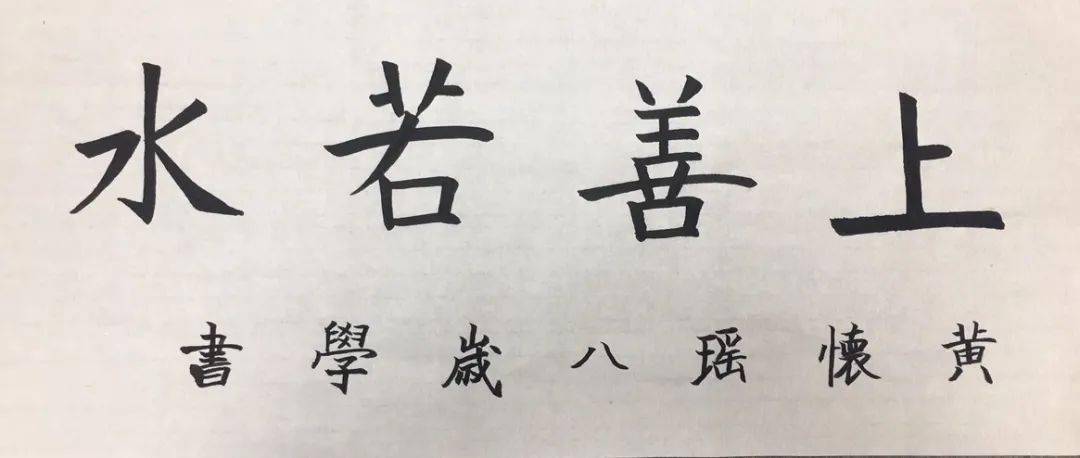 上善若水
黄懷瑶八歲學書